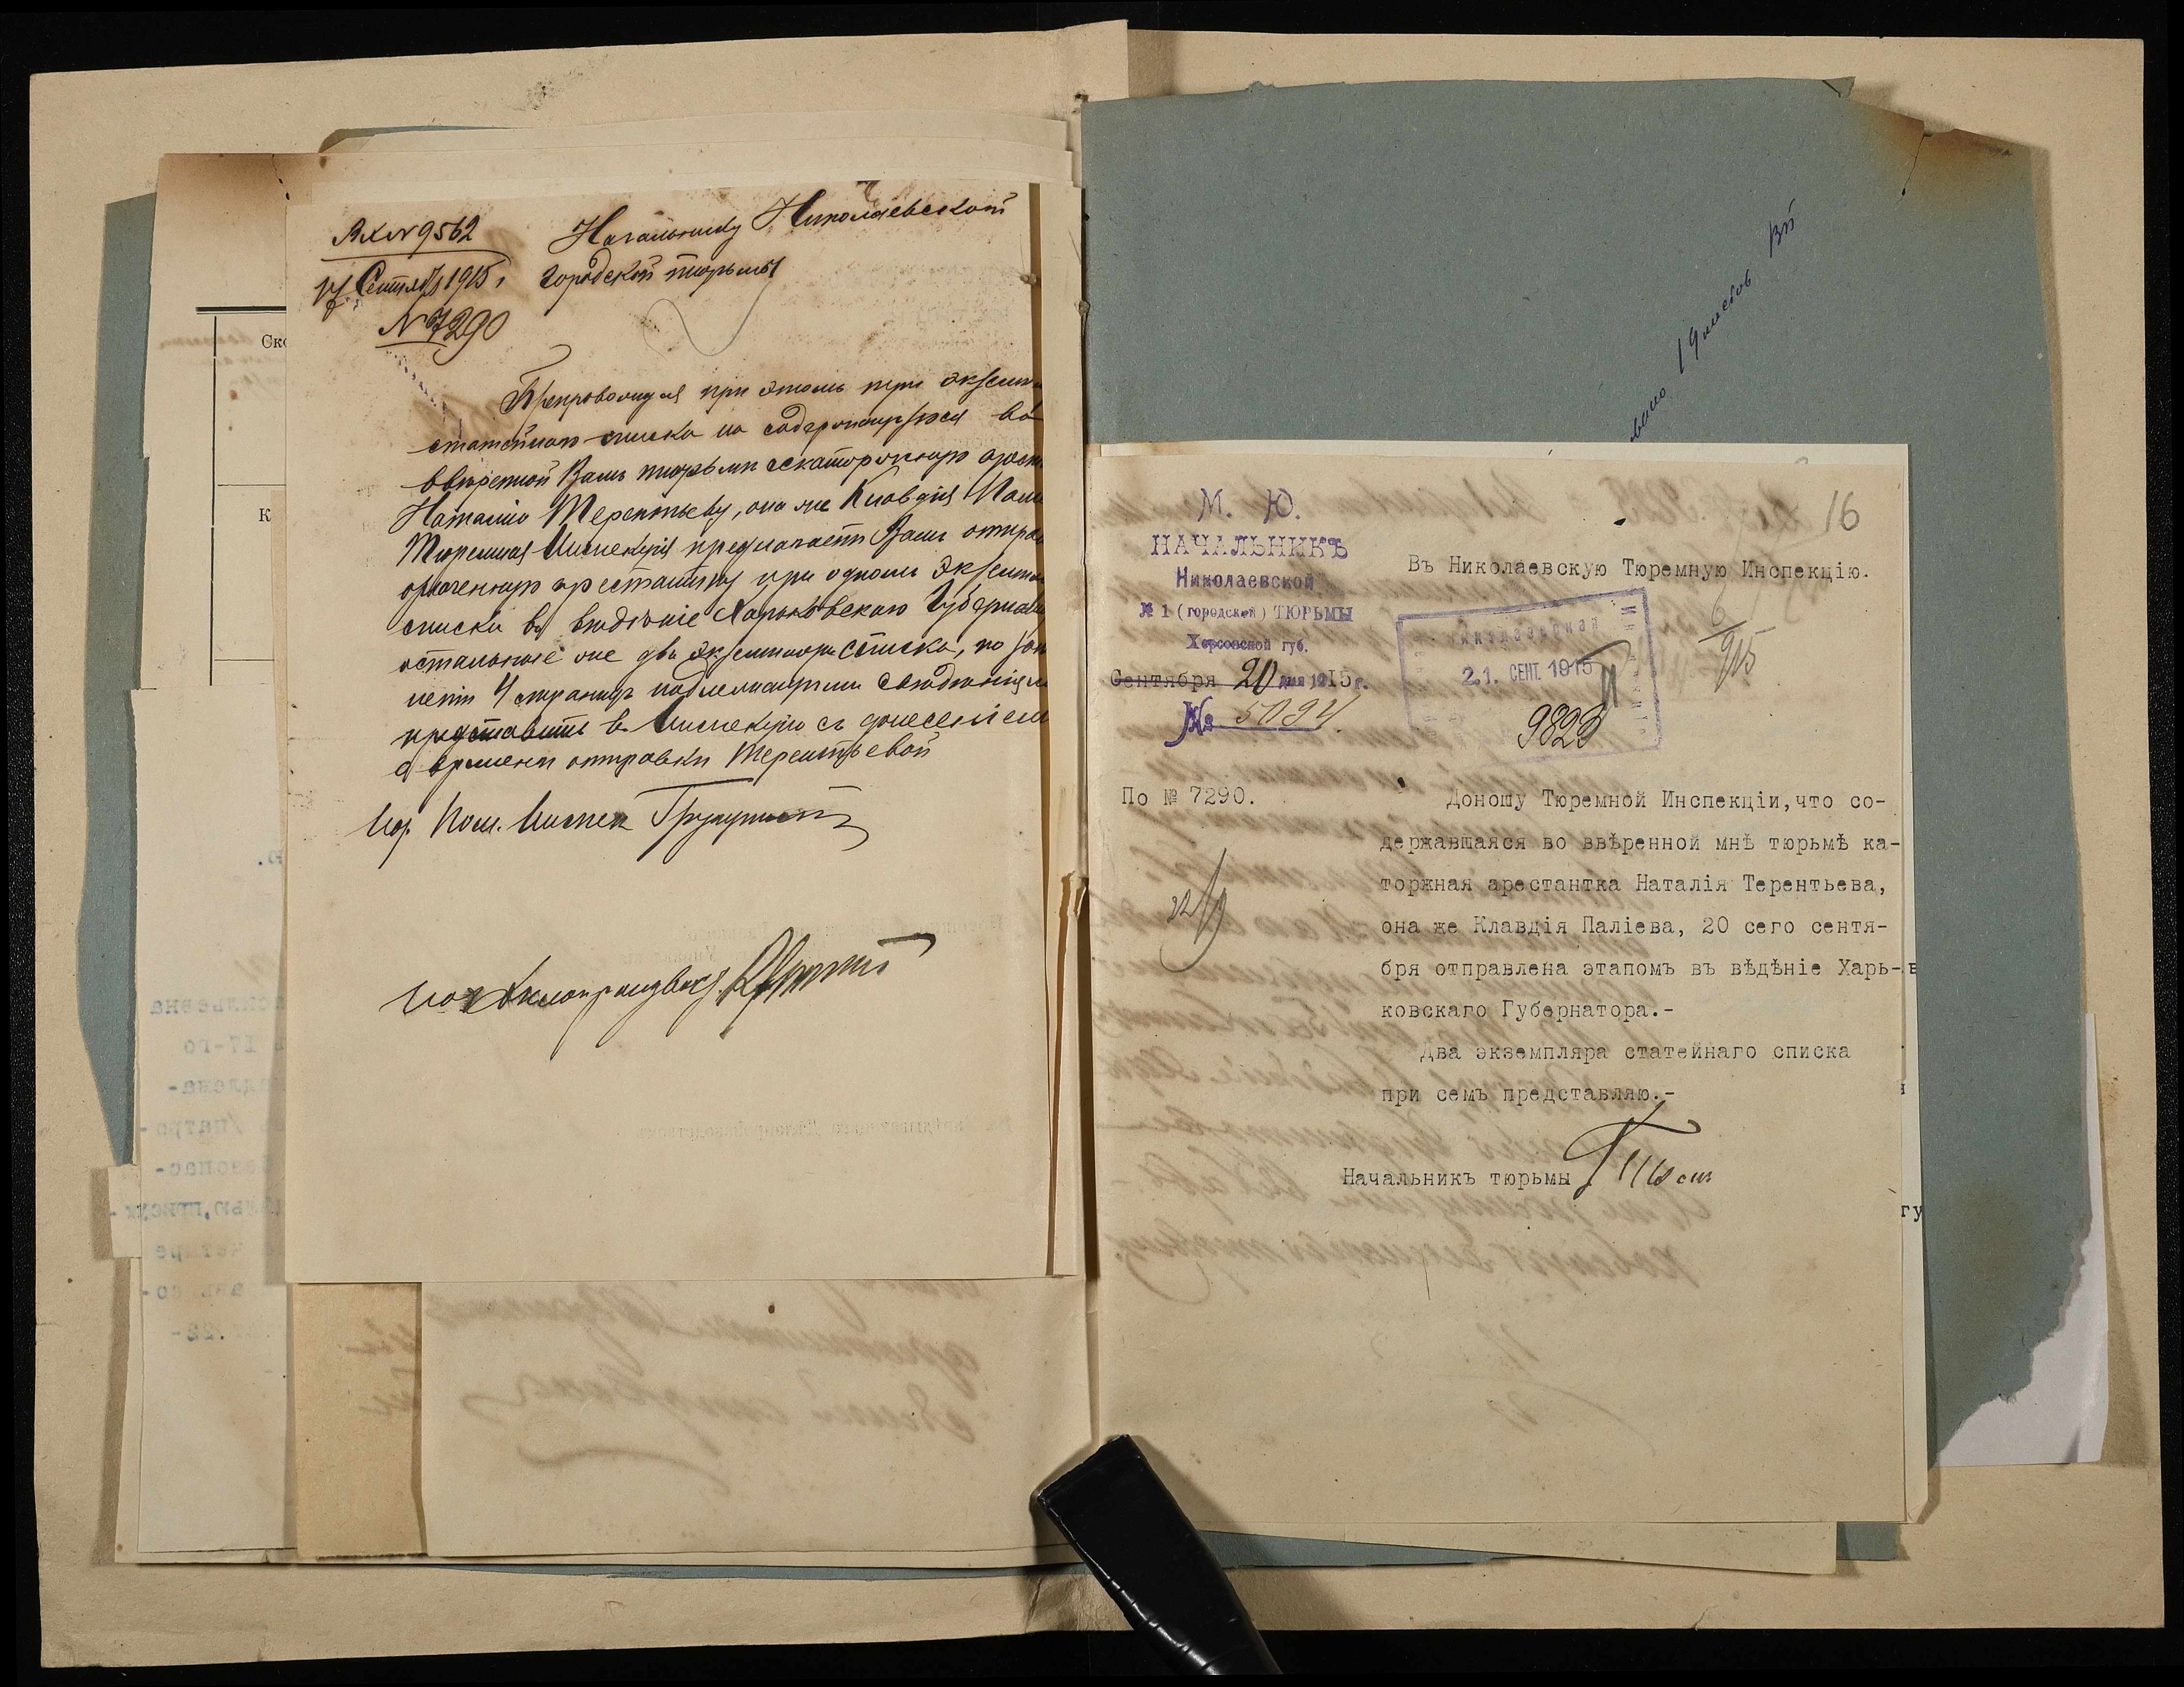 Вх № 9562
Начальнику Николаевской
17 Сентяб. 1915 г.
Городской тюрьмы
№ 7290
Препровождая при этомъ три экземп
статейнаго списка на содержащуюся во
ввѣренной Вамъ тюрьмѣ ссыльнокаторжную арест
Наталію Терентьеву, она же Клавдія Палі
Тюремная Инспекція предлагаетъ Вамъ отпра
означенную арестантку при одномъ экземп
списка въ вѣдѣніе Харьковскаго Губерна
остальные же два экземпляра списка, по
4 страницъ надлежащими свѣдѣніями
представить въ Инспекцію съ донесеніемъ
о времени отправки Терентьевой
Пом. Инспек
Дѣлопроизвод.
Ско
К
вано 19 листов
16
М. Ю.
НАЧАЛЬНИКЪ
Николаевской
№ 1 (городской) ТЮРЬМЫ
Херсонской губ.
Сентября 20 дня 1915 г.
№ 5094
Въ Николаевскую Тюремную Инспекцію.
21. СЕНТ. 1915
9823
6/915
По № 7290.
Доношу Тюремной Инспекціи, что со-
державшаяся во ввѣренной мнѣ тюрьмѣ ка-
торжная арестантка Наталія Терентьева,
она же Клавдія Паліева, 20 сего сентя-
бря отправлена этапомъ въ вѣдѣніе Харь-
ковскаго Губернатора.-
Два экземпляра статейнаго списка
при семъ представляю.-
Начальникъ тюрьмы
гу